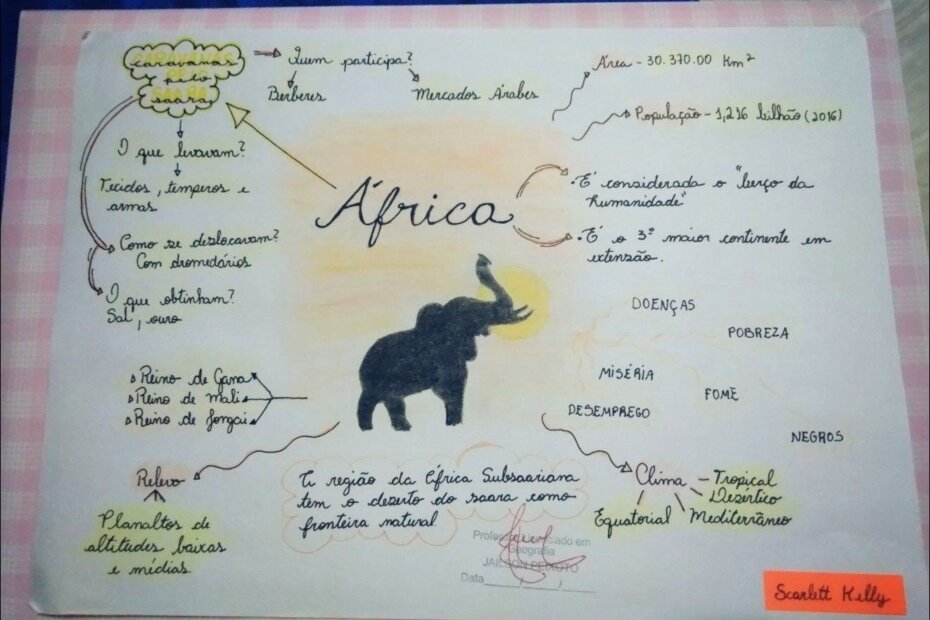 CARAVANAS
pelo
saara
Quem participa?
Berberes
Mercados Árabes
Área - 30.370.00 Km²
População - 1,216 bilhão (2016)
O que levavam?
Tecidos, temperos e
armas
Como se deslocavam?
Com dromedários
O que obtinham?
Sal, ouro
África
•É considerada o "berço da
humanidade"
•É o 3º maior continente em
extensão.
DOENÇAS
POBREZA
MISÉRIA
FOME
DESEMPREGO
NEGROS
Reino de Gana
Reino de Mali
Reino de Songai
Relevo
Planaltos de
altitudes baixas
e médias.
A região da África Subsaariana
tem o deserto do saara como
fronteira natural.
Clima
Tropical
Desértico
Mediterrâneo
Equatorial
em
Geografia
JAILSON PEIXOTO
Data___/___/___
Scarlett Kelly